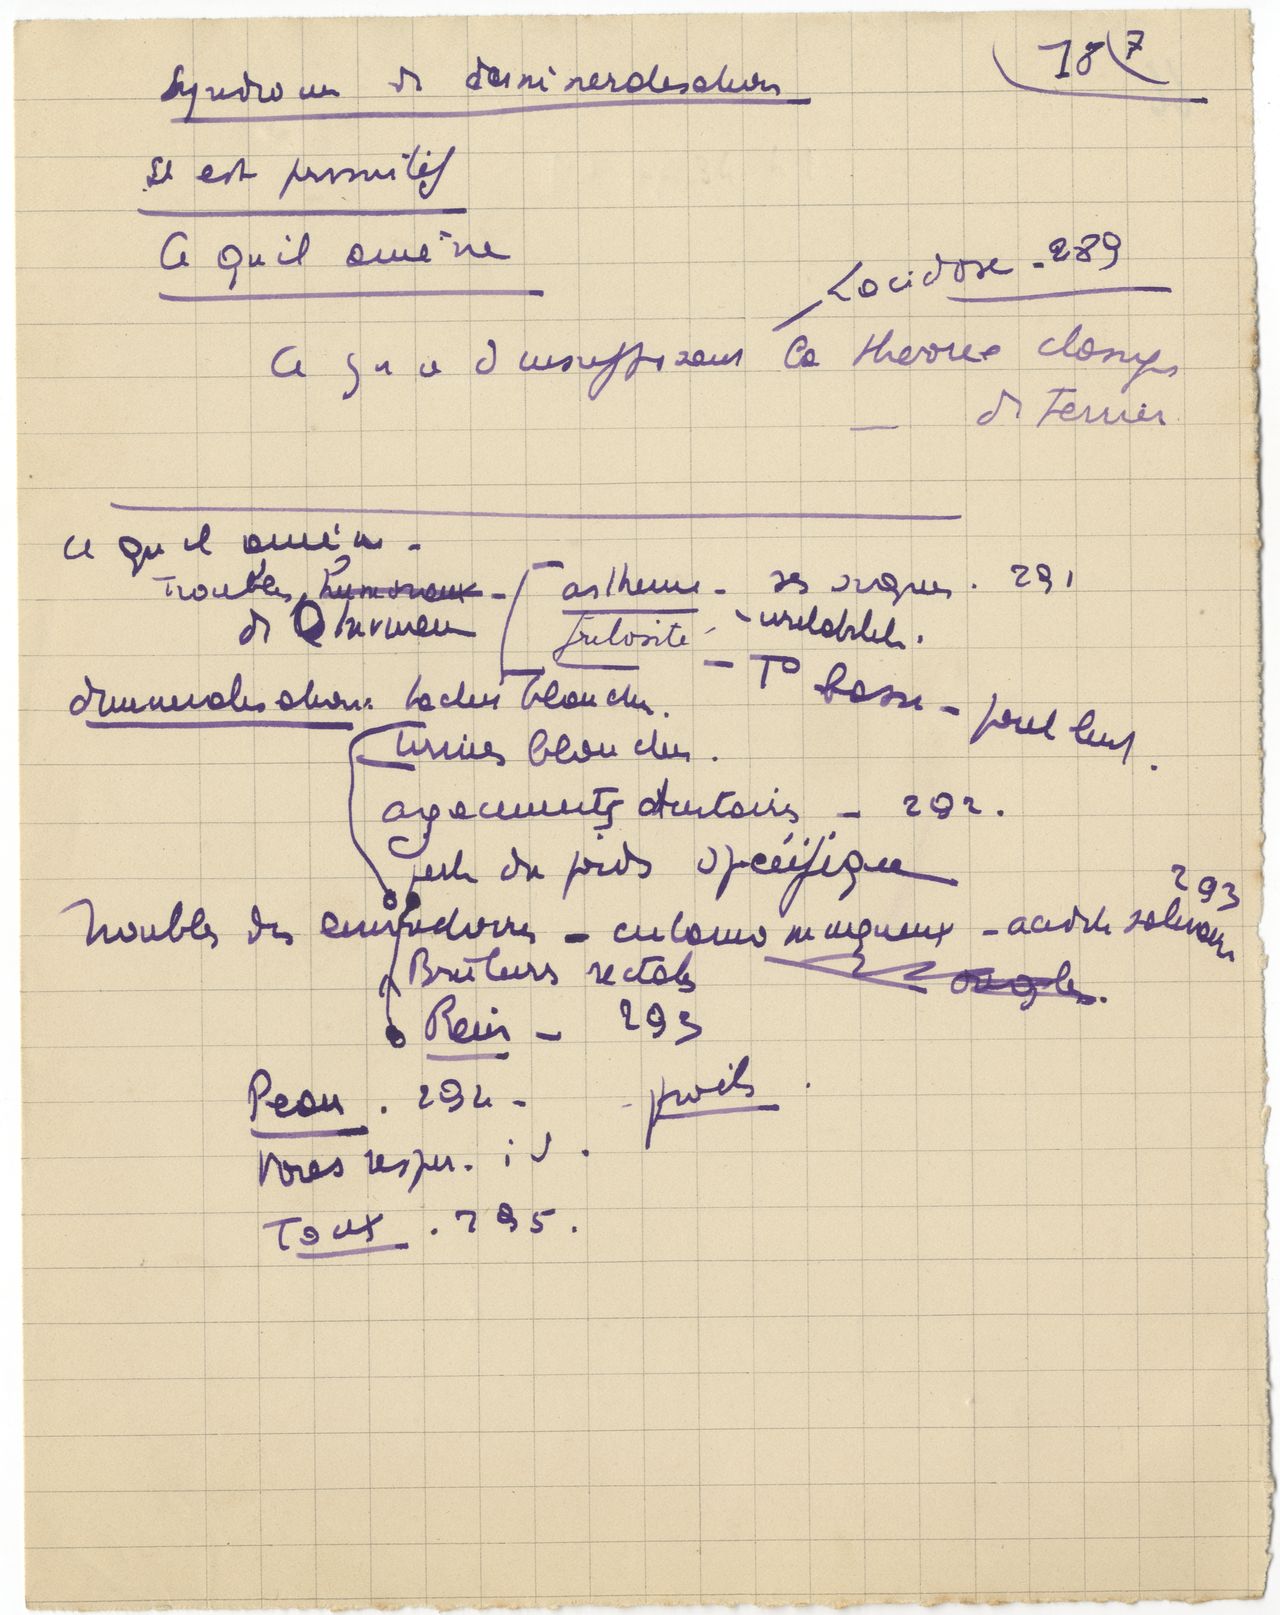 187
Syndrome de deminéralisation
Il est primitif
Ce qu'il amène
L'acidose - 289
Ce qu'a d'insuffisant la théorie classique
de Ferrier
Ce qu'il amène -
Troubles humoraux - asthenie - ses signes. 291
de frilosité - irritabilité.
- T° basse - pouls lent.
deminéralisation: taches blanches.
urines blanches.
agacements dentaires - 292.
perte du poids spécifique
293
Troubles des émonctoires - muqueux - acidité salivaire
ongles.
Brûlures rectales
Rein - 293
Peau. 294 - - poils.
Voies respir.
Toux. 295.